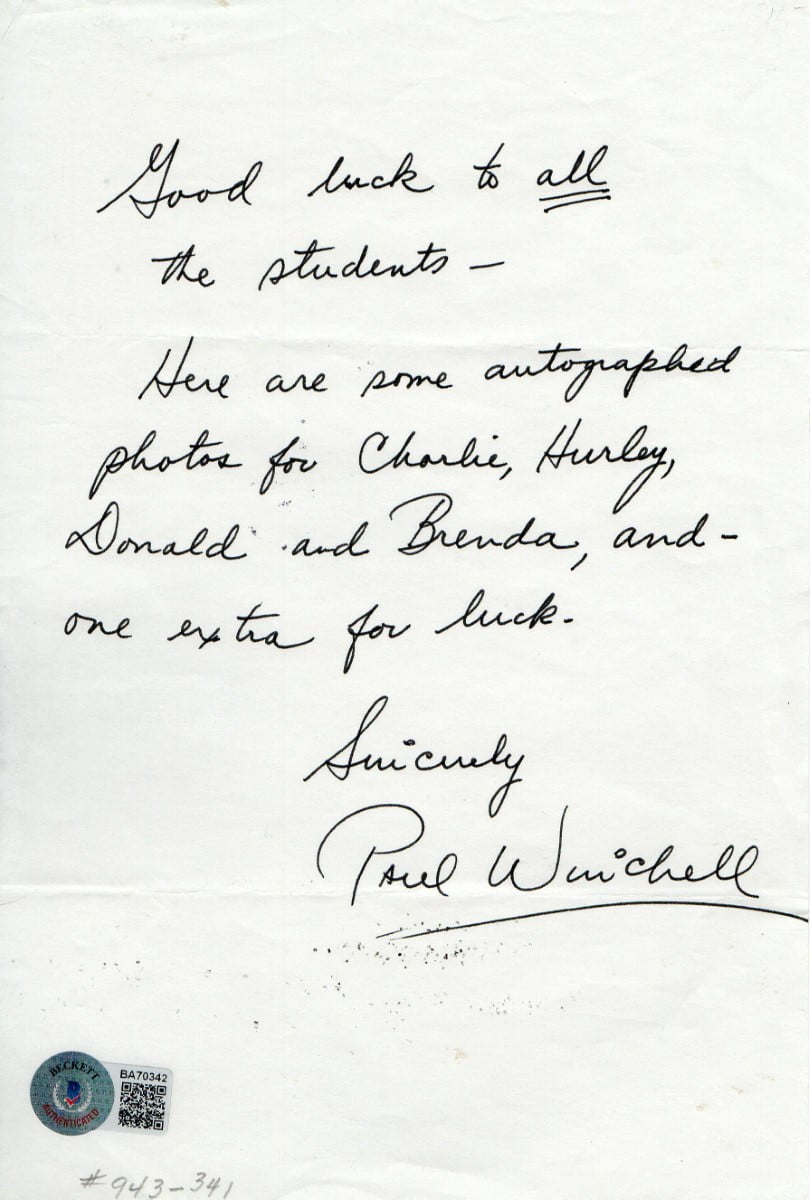 Good luck to all
the students –
Here are some autographed
photos for Charlie, Hurley,
Donald and Brenda, and –
one extra for luck.
Sincerely
Paul Winchell
BECKETT
B
AUTHENTICATED
BA70342
#943-341